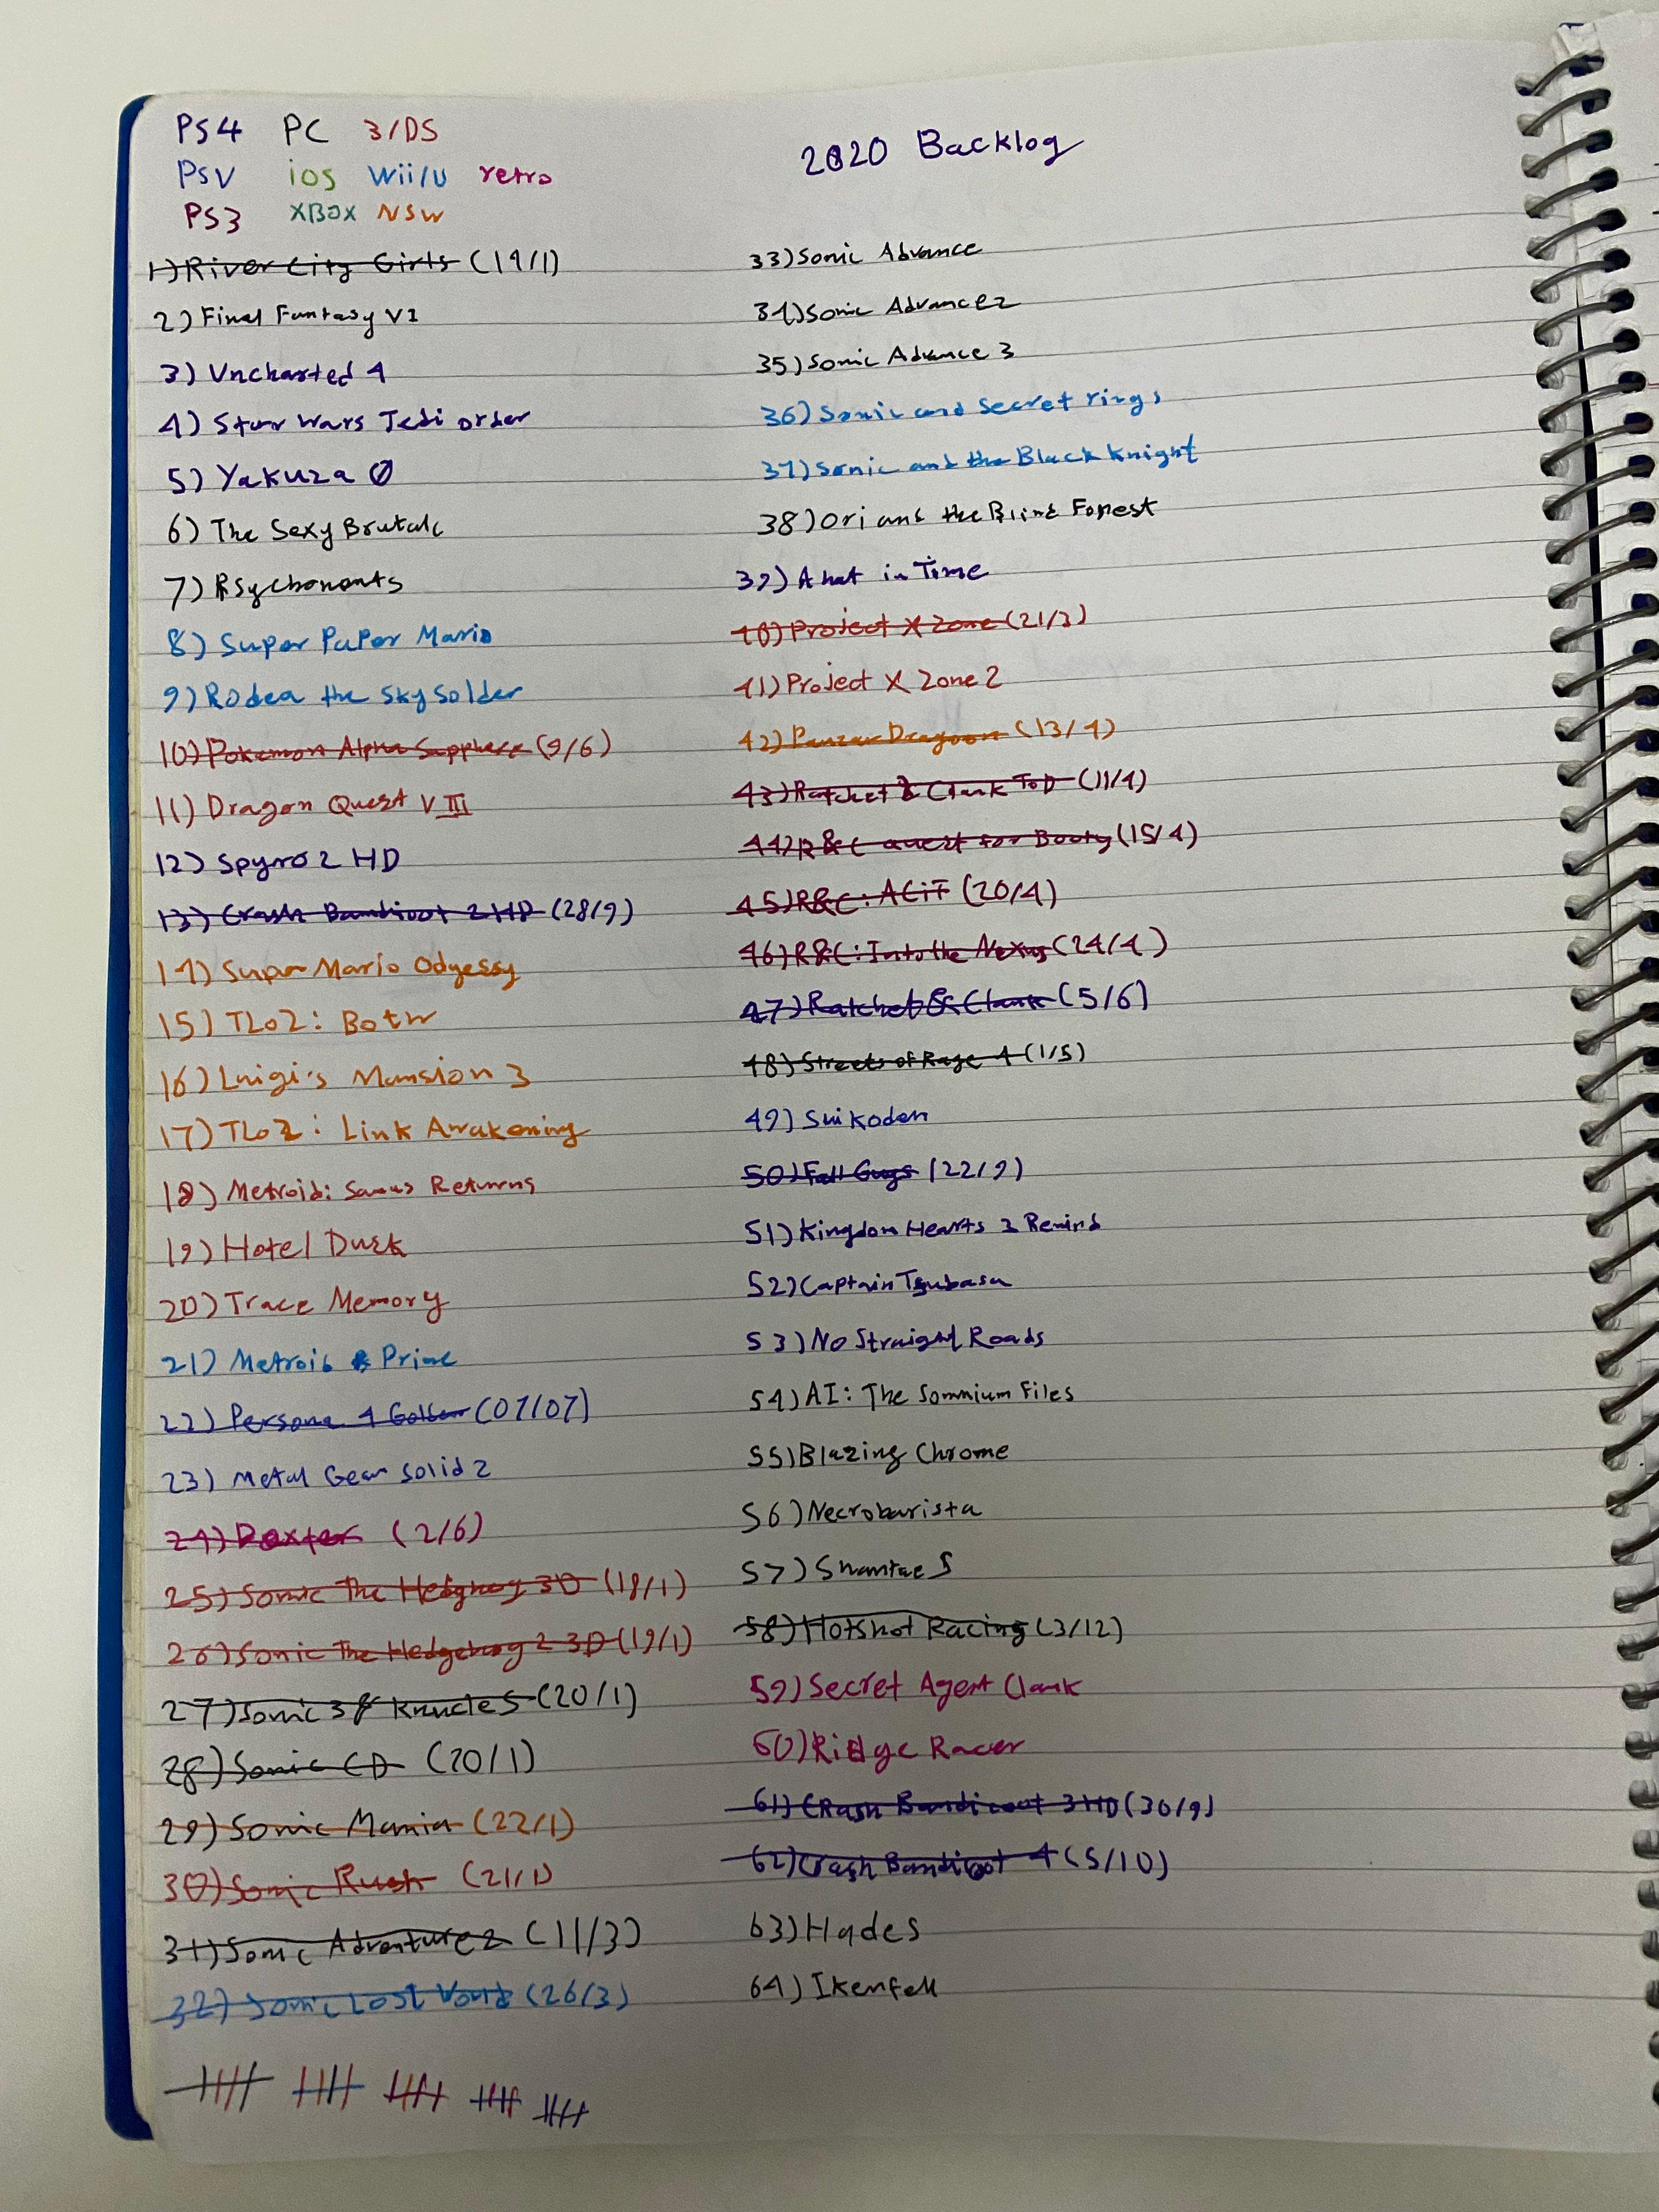 PS4 PC 3/DS
PSV ios Wii/U retro
PS3 XBOX NSW
2020 Backlog
1) River City Girls (19/1)
2) Final Fantasy VI
3) Uncharted 4
4) Star Wars Jedi order
5) Yakuza 0
6) The Sexy Brutale
7) Psychonants
8) Super Paper Mario
9) Rodea the Sky Solder
10) Pokemon Alpha Sapphere (9/6)
11) Dragon Quest VIII
12) Spyro 2 HD
13) Crash Bandicoot 2 HD (28/9)
14) Super Mario Odyessy
15) TLOZ: Botw
16) Luigi's Mansion 3
17) TLOZ: Link Awakening
18) Metroid: Samus Returns
19) Hotel Dusk
20) Trace Memory
21) Metroid Prime
22) Persona 4 Golden (07/07)
23) Metal Gear Solid 2
24) (2/6)
25) Sonic The Hedgehog 3D (18/1)
26) Sonic The Hedgehog 2 3D (19/1)
27) Sonic 3 & Knucles (20/1)
28) Sonic CD (20/1)
29) Sonic Mania (22/1)
30) Sonic Rush (21/1)
31) Sonic Adventure 2 (11/3)
32) Sonic Lost World (26/3)
33) Sonic Advance
34) Sonic Advance 2
35) Sonic Advance 3
36) Sonic and Secret rings
37) Sonic and the Black Knight
38) Ori and the Blind Forest
39) A hat in Time
40) Project X Zone (21/3)
41) Project X Zone 2
42) Panzar Dragoon (13/4)
43) Ratchet & Clank ToD (11/4)
44) R&C Quest for Booty (15/4)
45) R&C: ACiT (20/4)
46) R&C: Into the Nexus (24/4)
47) Ratchet & Clank (5/6)
48) Streets of Rage 4 (1/5)
49) Suikoden
50) Fall Guys (22/9)
51) Kingdom Hearts 3 Remind
52) Captain Tsubasa
53) No Straight Roads
54) AI: The Somnium Files
55) Blazing Chrome
56) Necrobarista
57) Shantae 5
58) Hotshot Racing (3/12)
59) Secret Agent Clank
60) Ridge Racer
61) Crash Bandicoot 3 HD (30/9)
62) Crash Bandicoot 4 (5/10)
63) Hades
64) Ikenfell